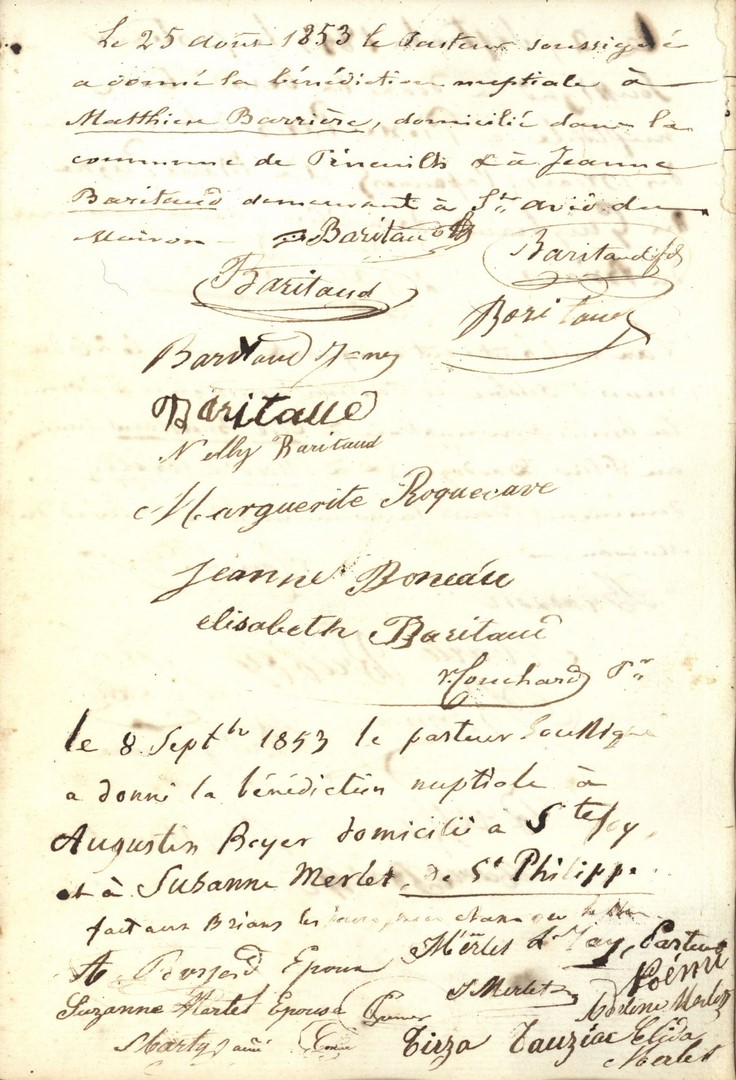 Le 25 août 1853 le Pasteur soussigné
a donné la bénédiction nuptiale à
Matthieu Barrière, domicilié dans la
commune de Pineuilh & à Jeanne
Baritaud demeurant à St. avit du
Moiron
Baritaud
Baritaud fs
Baritaud
Baritaud
Baritaud Jne
Baritaud
Nelly Baritaud
Marguerite Roquecave
Jeanne Boneau
elisabeth Baritaud
Couchard Pr
le 8 Septbre 1853 le pasteur Soussigné
a donné la bénédiction nuptiale à
Augustin Boyer domicilié à Ste foy,
et à Suzanne Merlet, de St Philippe
fait aux Brians les jour, mois et an
Merlet Pasteur
A Epoux
Noémi
Suzanne Merlet Epouse
J Merlet
Merlet
Marty ainé
Tirza Tauziac
Elida
Merlet